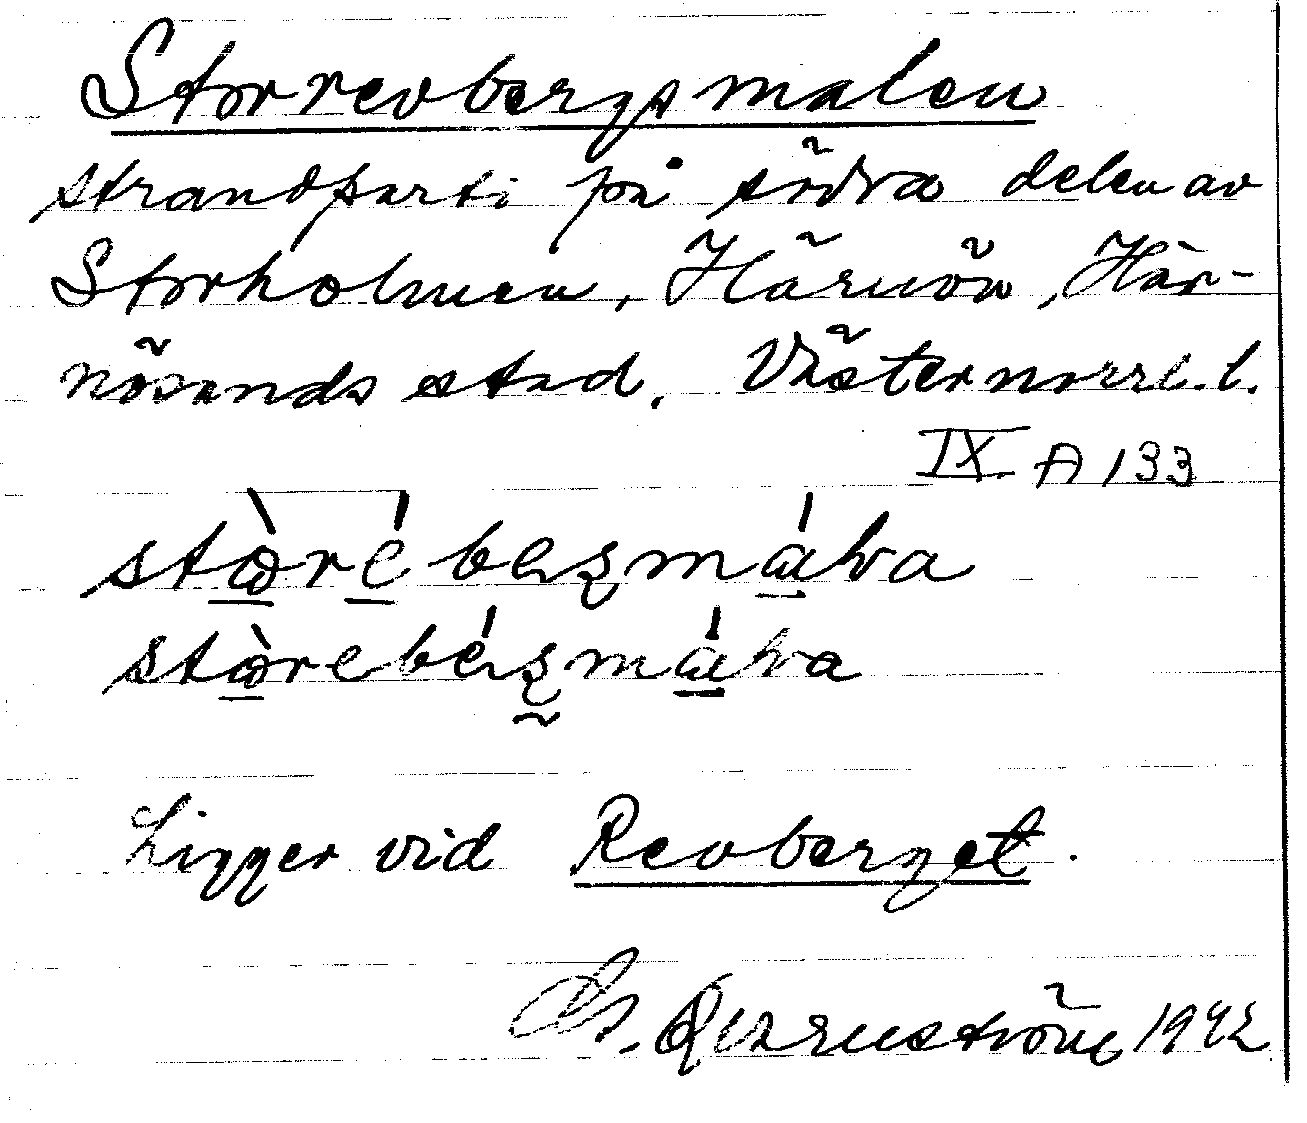 Storrevbergsmalen
strandparti på södra delen av
Storholmen, Härnön, Här-
nösands stad. Västernorrl. l.
IX A 133
Ligger vid Revberget.
1942